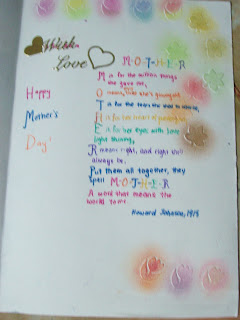 With
Love
Happy
Mother's
Day!
M-O-T-H-E-R
M is for the million things
she gave me,
O means only she's growing old
T is for the tears she shed to save me,
H is for her heart of purest gold
E is for her eyes with love
light shining,
R means right, and right she'll
always be.
Put them all together, they
spell M-O-T-H-E-R
A word that means the
world to me.
Howard Johnson, 1915